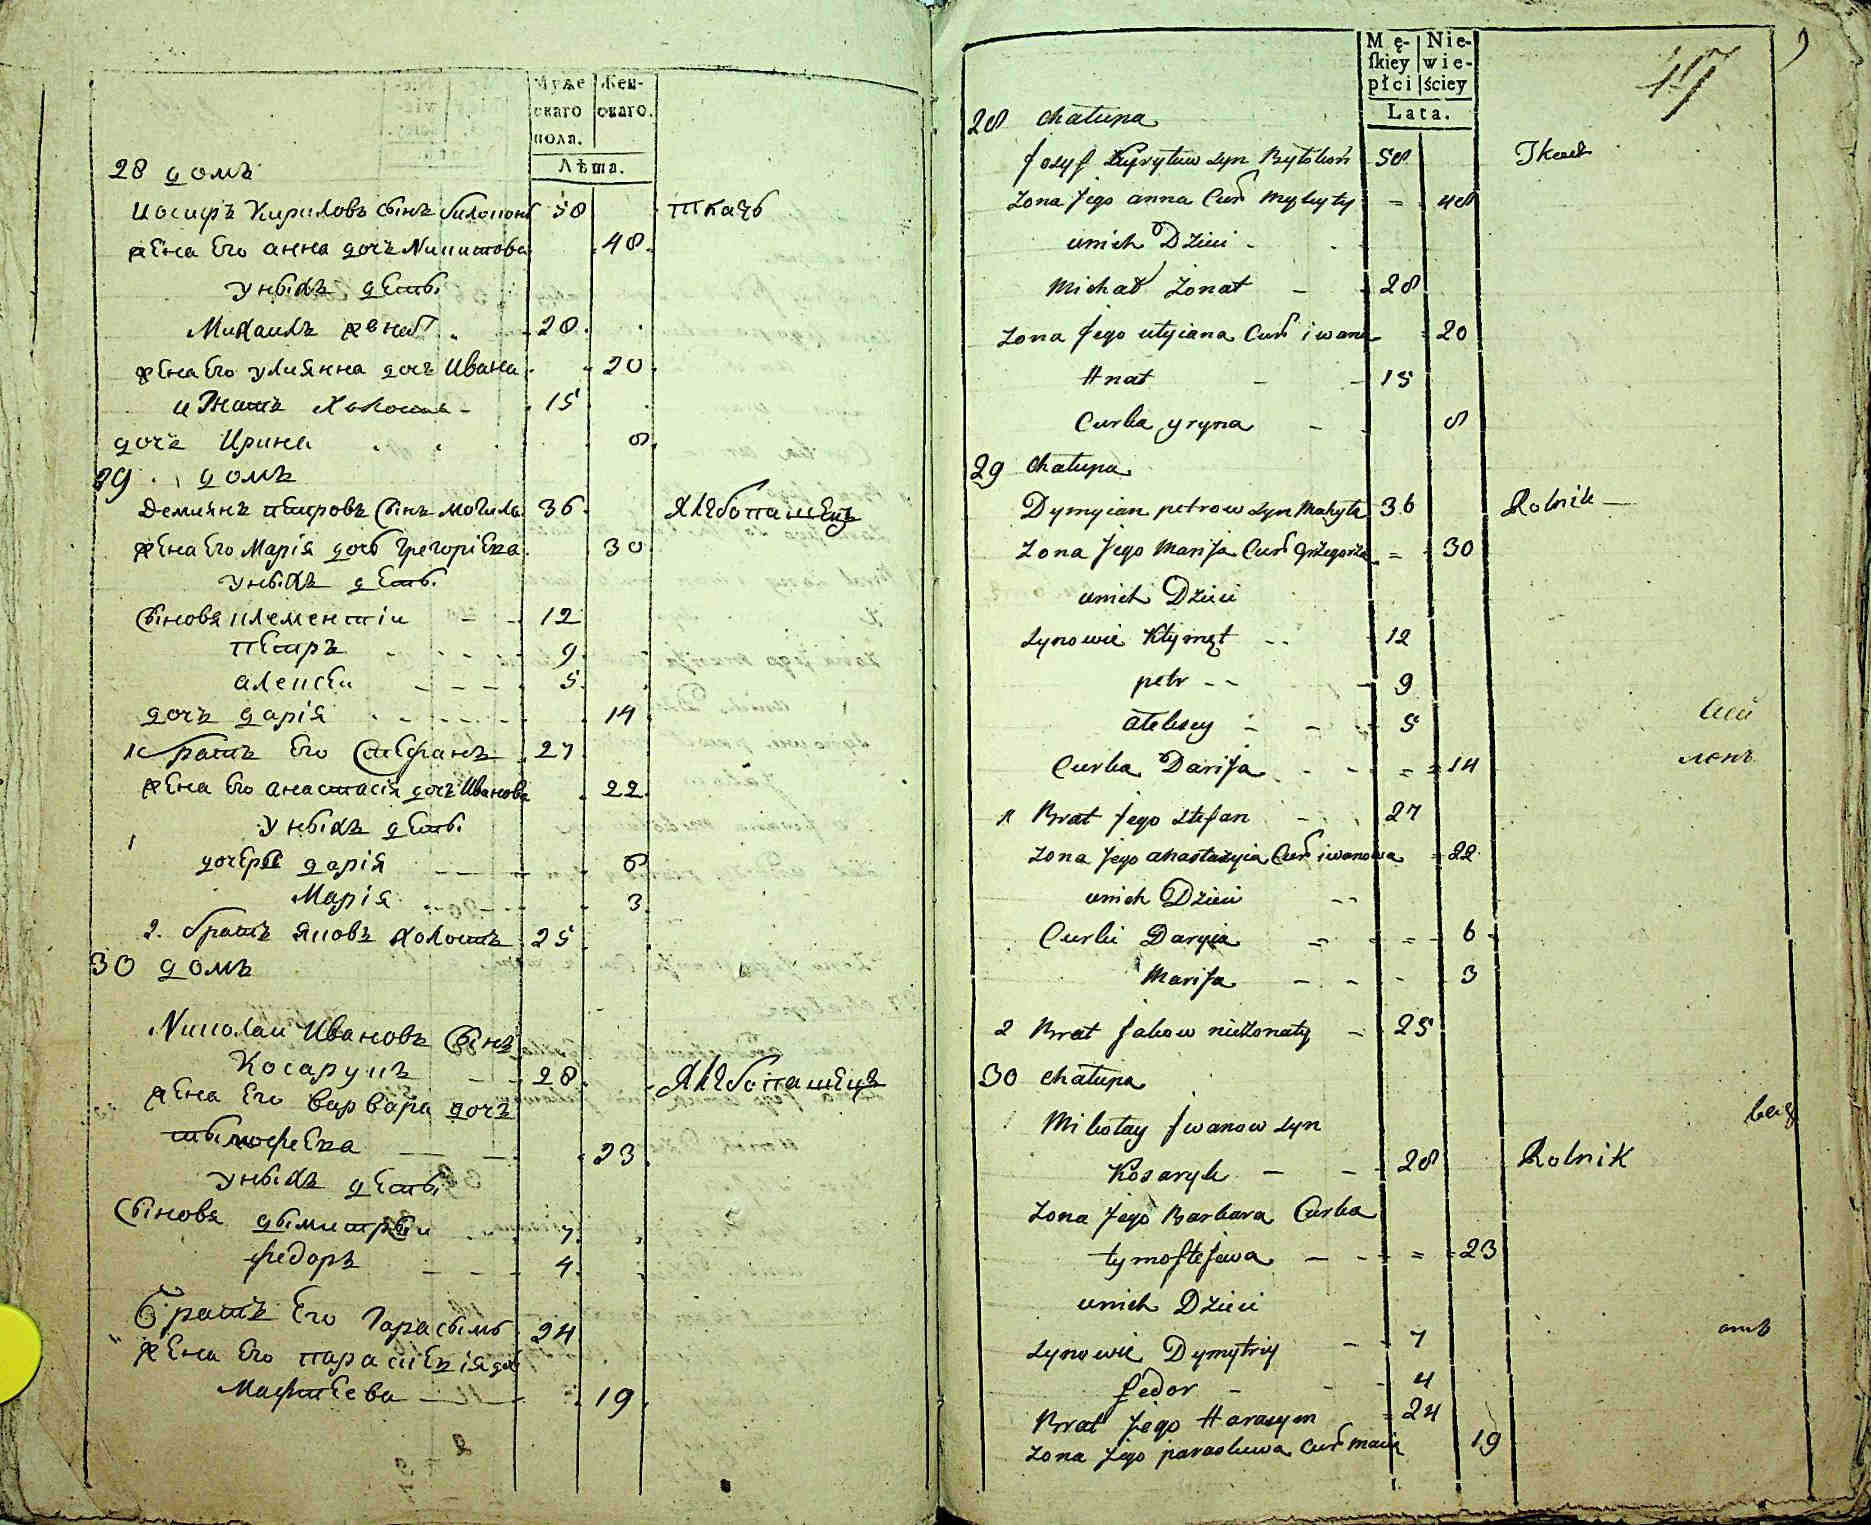 Муже
скаго
пола.
Жен-
скаго.
Лѣта.
28 домъ
Иосифъ Кириловъ сынъ 58 Ткачь
жена Его анна дочъ Никитова 48
у ныхъ дети
Михаилъ женат 28
жена Его улиянна дочъ Ивана 20
Игнатъ холостъ 15
дочъ Ирина 8
29 домъ
Демиянъ петровъ сынъ 36 Хлебопашецъ
жена Его Марія дочь Григоріева 30
у ныхъ дети
Сыновя климентіи 12
петръ 9
алексеи 5
дочъ дарія 14
1 братъ Его Стефанъ 27
жена Его анастасія дочъ Иванова 22
у ныхъ дети
дочеры дарія 6
Марія 3
2. братъ Яковъ холостъ 25
30 домъ
Николаи Ивановъ Сынъ
Косарукъ 28 Хлебопашецъ
жена Его варвара дочъ
тымофеева 23
у ныхъ дети
Сыновя дымитрыи 7
федоръ 4
Братъ Его Гарасымъ 24
жена Его параскевія дочь
Мафтеева 19
Mę-
ſkiey
płci
Nie-
wie-
ściey
Lata.
17
28 chałupa
Jozyf Kyryłuw syn 58 Tkacz
żona Jego anna Cur Mykyty = 48
unich Dzieci
Michał żonat 28
żona Jego ulyiana Cur iwana 20
Hnat 15
Curka yryna 8
29 chałupa
Dymyian petrow syn 36 Rolnik
żona Jego Maryia Cur Grzegorza = 30
unich Dzieci
synowie Kłymęt 12
petr 9
ałeksey 5
Curka Darija = 14
1 Brat Jego Stefan 27
żona Jego anastazyia Cur iwanowa 22
unich Dzieci
Curki Daryia = = 6
Marija 3
2 Brat Jakow nieżonaty 25
30 chałupa
Mikołay Jwanow syn
Kosaryk 28 Rolnik
żona Jego Barbara Curka
tymoftejewa = 23
unich Dzieci
synowie Dymytriy 7
fedor 4
Brat Jego Harasym 24
żona Jego paraskewa Cur 19